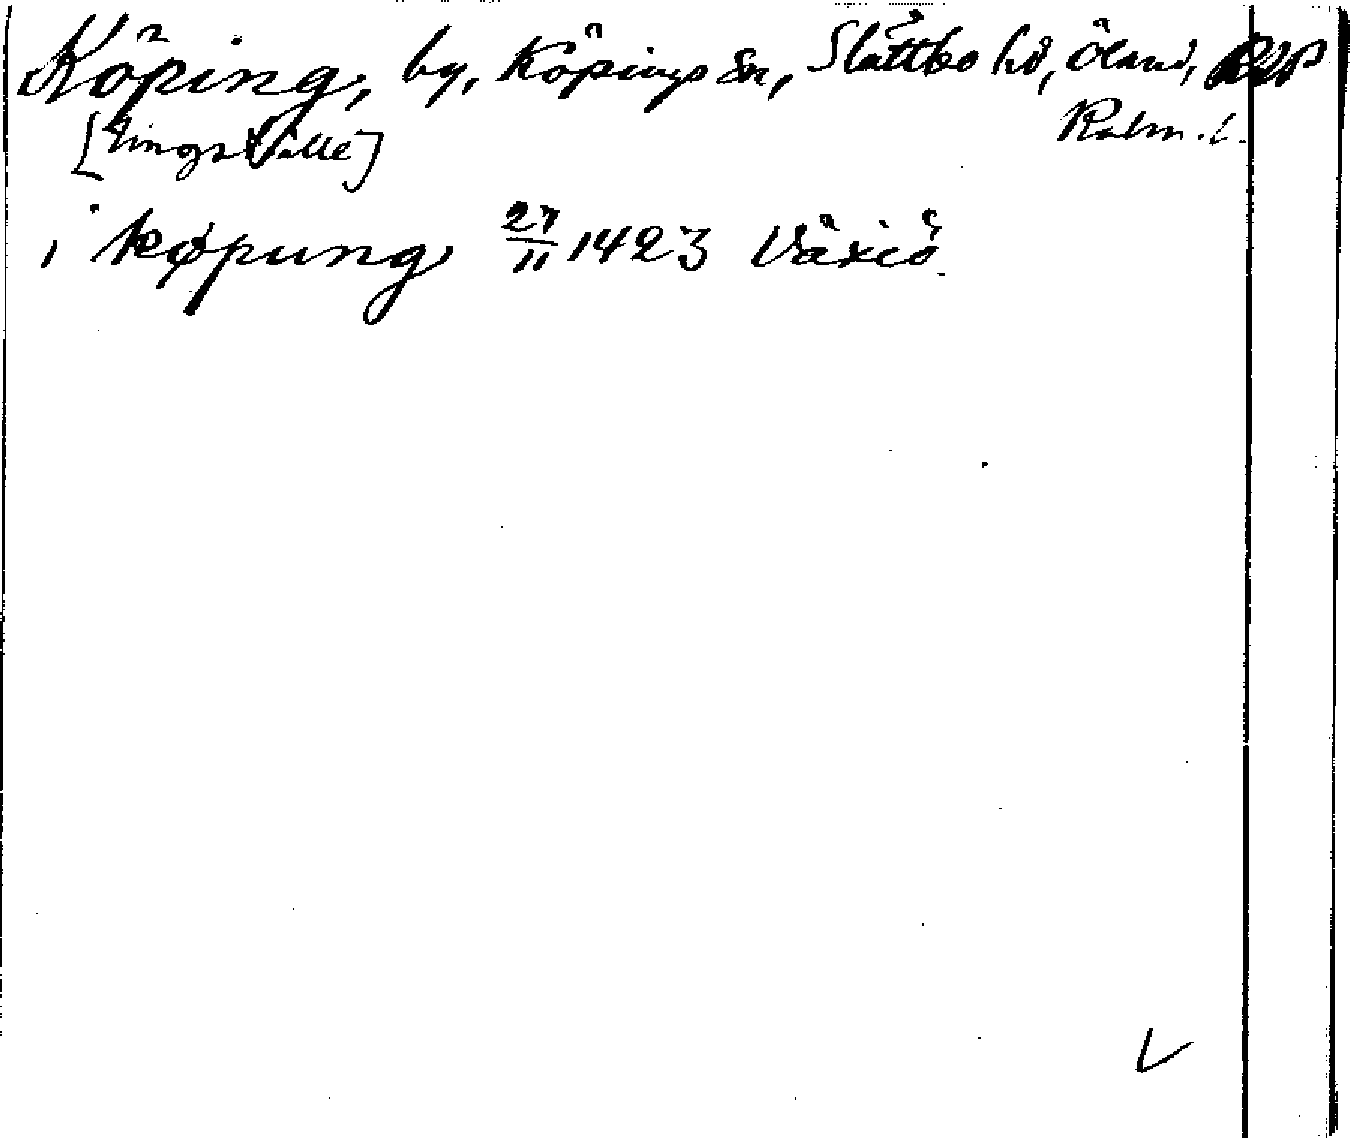 Köping, by, Köpings sn, Slättbo hd, Öland,
Kalm. l.
[tingställe]
i køpung 27/11 1423 Växiö